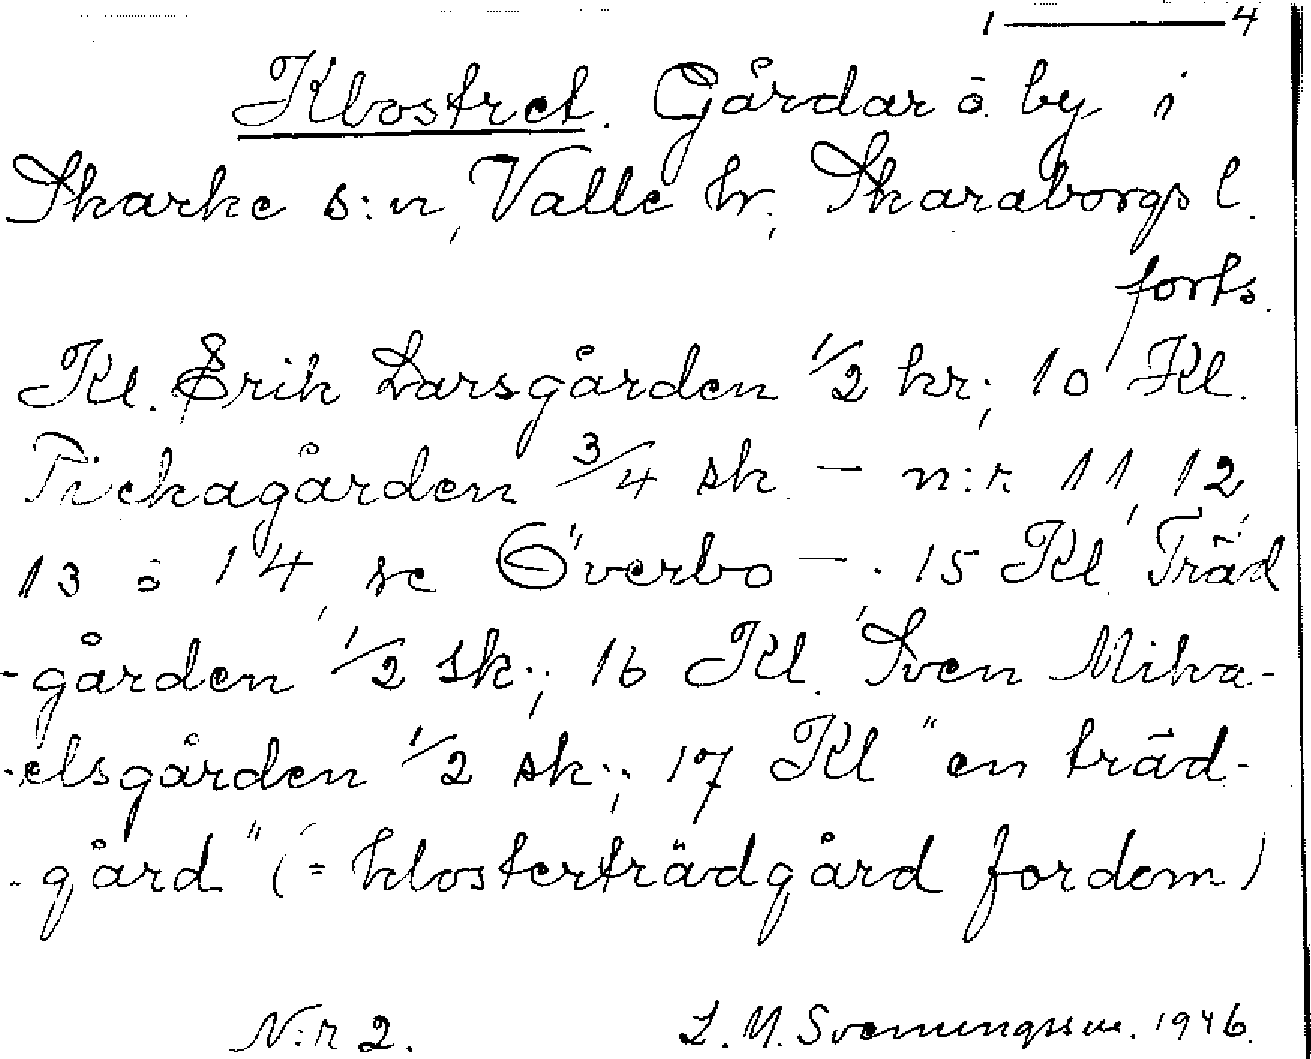 1 — 4
Klostret. Gårdar o. by i
Skarke s:n, Valle hr, Skaraborgs l.
forts.
Kl. Erik Larsgården 1/2 kr.; 10 Kl.
Pickagården 3/4 sk. — n:r 11, 12,
13 o 14, se Överbo — . 15 Kl. Träd
-gården 1/2 sk.; 16 Kl. Sven Mika-
-elsgården 1/2 sk.; 17 Kl "en träd-
-gård" (= klosterträdgård fordom)
N:r 2. L. M. Svenungsson. 1946.